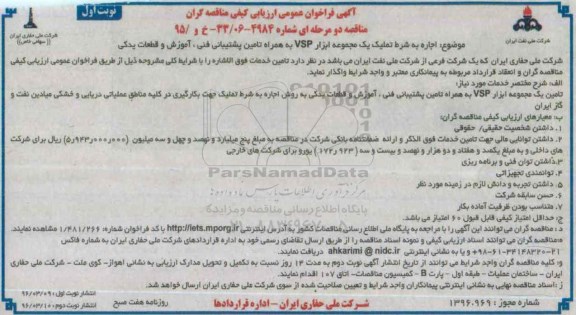 نوبت اول
آگهی فراخوان عمومی ارزیابی کیفی مناقصه گران
مناقصه دو مرحله ای شماره ۴۹۸۴-۰۶-۳۳- خ و /۹۵
شرکت ملی نفت ایران
شرکت ملی حفاری ایران
(سهامی خاص)
موضوع: اجاره به شرط تملیک یک مجموعه ابزار VSP به همراه تامین پشتیبانی فنی ، آموزش و قطعات یدکی
شرکت ملی حفاری ایران که یک شرکت فرعی از شرکت ملی نفت ایران می باشد در نظر دارد تامین خدمات فوق الاشاره را با شرایط کلی مشروحه ذیل از طریق فراخوان عمومی ارزیابی کیفی
مناقصه گران و انعقاد قرارداد مربوطه به پیمانکاری معتبر و واجد شرایط واگذار نماید.
الف: شرح مختصر خدمات مورد نیاز:
تامین یک مجموعه ابزار VSP به همراه تامین پشتیبانی فنی ، آموزش و قطعات یدکی به روش اجاره به شرط تملیک جهت بکارگیری در کلیه مناطق عملیاتی دریایی و خشکی میادین نفت و
گاز ایران
ب: معیارهای ارزیابی کیفی مناقصه گران:
۱. داشتن شخصیت حقیقی/ حقوقی
۲. داشتن توانایی مالی جهت تامین خدمات فوق الذکر و ارائه ضمانتنامه بانکی شرکت در مناقصه به مبلغ پنج میلیارد و نهصد و چهل و سه میلیون (۵٫۹۴۳٫۰۰۰٫۰۰۰) ریال برای شرکت
های داخلی و به مبلغ یکصد و هفتاد و دو هزار و نهصد و بیست و سه (۱۷۲٫۹۲۳) یورو برای شرکت های خارجی
۳.داشتن توان فنی و برنامه ریزی
۴. توانمندی تجهیزاتی
۵. داشتن تجربه و دانش لازم در زمینه مورد نظر
۶. حسن سابقه شرکت
۷. متناسب بودن ظرفیت آماده بکار
ج: حداقل امتیاز کیفی قابل قبول ۶۰ امتیاز می باشد.
د: مناقصه گران می توانند این آگهی را با مراجعه به پایگاه ملی اطلاع رسانی مناقصات کشور به آدرس اینترنتی http://iets.mporg.ir با کد فراخوان شماره: ۱/۴۸۱/۲۶۶ مشاهده نمایند.
مناقصه گران می توانند اسناد ارزیابی کیفی و نمونه اسناد مناقصه را از طریق ارسال تقاضای رسمی خود به اداره قراردادهای شرکت ملی حفاری ایران به شماره فاکس
یا به آدرس اینترنتی ahkarimi @ nidc.ir دریافت نمایند.
و: کلیه مناقصه گران واجد شرایط می توانند از تاریخ انتشار آگهی نوبت دوم به مدت ۱۴ روز نسبت به تکمیل و تحویل مدارک ارزیابی به نشانی اهواز- کوی ملت - شرکت ملی حفاری
ایران - ساختمان عملیات - طبقه اول - پارت B - کمیسیون مناقصات- اتاق ۱۰۷ اقدام نمایند.
ز: اسناد مناقصه نهایی به نشانی اینترنتی پیمانکاران واجد شرایط و تعیین صلاحیت شده از سوی شرکت ملی حفاری ایران ارسال خواهد شد.
شماره مجوز : ۱۳۹۶.۹۶۹
شرکت ملی حفاری ایران - اداره قراردادها
روزنامه هفت صبح
انتشار نوبت اول ۹۶/۰۳/۰۹
انتشار نوبت دوم ۹۶/۰۳/۱۰
ParsNamadData
پایگاه اطلاع رسانی مناقصه و مزایده